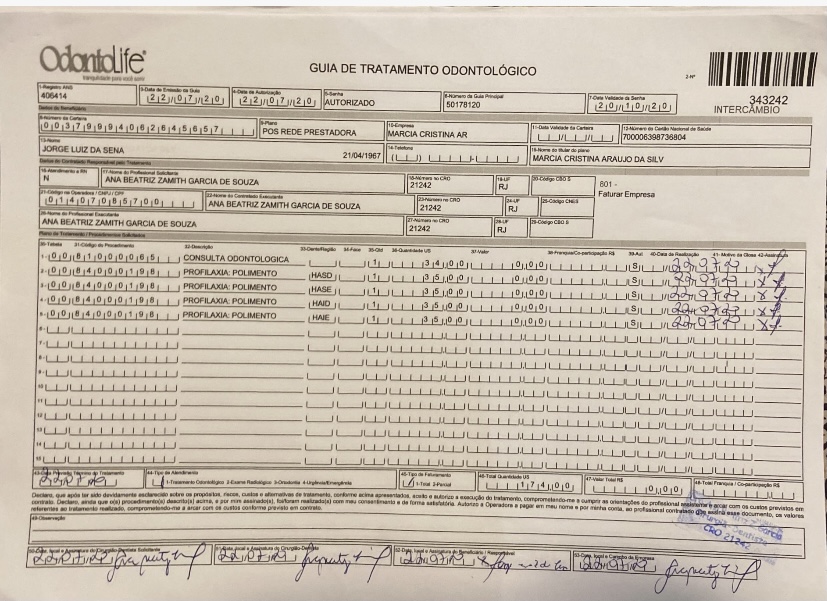 OdontoLife
tranquilidade para você sorrir
GUIA DE TRATAMENTO ODONTOLÓGICO
2-Nº
343242
INTERCÂMBIO
1-Registro ANS
406414
3-Data de Emissão da Guia
22/07/20
4-Data de Autorização
22/07/20
5-Senha
AUTORIZADO
6-Número da Guia Principal
50178120
7-Data Validade da Senha
20/10/20
Dados do Beneficiário
8-Número da Carteira
00379994062645657
9-Plano
POS REDE PRESTADORA
10-Empresa
MARCIA CRISTINA AR
11-Data Validade da Carteira
12-Número do Cartão Nacional de Saúde
700006398736804
13-Nome
JORGE LUIZ DA SENA
21/04/1967
14-Telefone
15-Nome do titular do plano
MARCIA CRISTINA ARAUJO DA SILV
Dados do Contratado Responsável pelo Tratamento
16-Atendimento a RN
N
17-Nome do Profissional Solicitante
ANA BEATRIZ ZAMITH GARCIA DE SOUZA
18-Número no CRO
21242
19-UF
RJ
20-Código CBO S
801 -
Faturar Empresa
21-Código na Operadora / CNPJ / CPF
01407085700
22-Nome do Contratado Executante
ANA BEATRIZ ZAMITH GARCIA DE SOUZA
23-Número no CRO
21242
24-UF
RJ
25-Código CNES
26-Nome do Profissional Executante
ANA BEATRIZ ZAMITH GARCIA DE SOUZA
27-Número no CRO
21242
28-UF
RJ
29-Código CBO S
Plano de Tratamento / Procedimentos Solicitados
30-Tabela 31-Código do Procedimento 32-Descrição 33-Dente/Região 34-Face 35-Qtd 36-Quantidade US 37-Valor 38-Franquia/Co-participação R$ 39-Aut 40-Data de Realização 41-Motivo da Glosa 42-Assinatura
1- 00 81000065 CONSULTA ODONTOLOGICA 1 34,00 0,00 S 22/07/20
2- 00 84000198 PROFILAXIA: POLIMENTO HASD 1 35,00 0,00 S 22/07/20
3- 00 84000198 PROFILAXIA: POLIMENTO HASE 1 35,00 0,00 S 22/07/20
4- 00 84000198 PROFILAXIA: POLIMENTO HAID 1 35,00 0,00 S 22/07/20
5- 00 84000198 PROFILAXIA: POLIMENTO HAIE 1 35,00 0,00 S 22/07/20
6-
7-
8-
9-
10-
11-
12-
13-
14-
15-
43-Data Previsão Término do Tratamento
44-Tipo de Atendimento
1-Tratamento Odontológico 2-Exame Radiológico 3-Ortodontia 4-Urgência/Emergência
45-Tipo de Faturamento
1-Total 2-Parcial
46-Total Quantidade US
174,00
47-Valor Total R$
0,00
48-Total Franquia / Co-participação R$
Declaro, que após ter sido devidamente esclarecido sobre os propósitos, riscos, custos e alternativas de tratamento, conforme acima apresentados, aceito e autorizo a execução do tratamento, comprometendo-me a cumprir as orientações do profissional assistente e arcar com os custos previstos em
contrato. Declaro, ainda que o(s) procedimento(s) descrito(s) acima, e por mim assinado(s), foi/foram realizado(s) com meu consentimento e de forma satisfatória. Autorizo a Operadora a pagar em meu nome e por minha conta, ao profissional contratado que assina esse documento, os valores
referentes ao tratamento realizado, comprometendo-me a arcar com os custos conforme previsto em contrato.
49-Observação
Garcia
CRO 21242
50-Data, local e Assinatura do Cirurgião-Dentista Solicitante
51-Data, local e Assinatura do Cirurgião-Dentista
52-Data, local e Assinatura do Beneficiário / Responsável
53-Data, local e Carimbo da Empresa